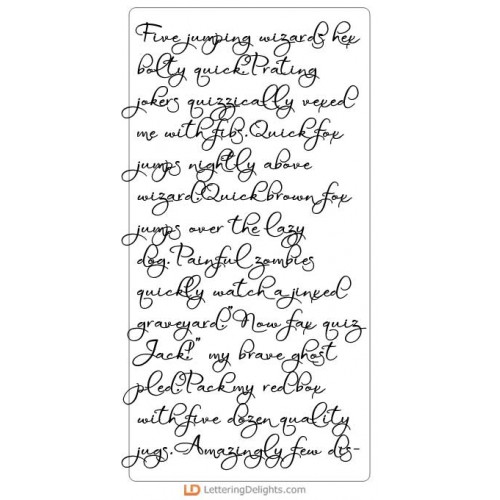 Five jumping wizards hex
bolty quick. Prating
jokers quizzically vexed
me with fibs. Quick fox
jumps nightly above
wizard. Quick brown fox
jumps over the lazy
dog. Painful zombies
quickly watch a jinxed
graveyard. "Now fax quiz
Jack!" my brave ghost
pled. Pack my red box
with five dozen quality
jugs. Amazingly few dis-
LD LetteringDelights.com